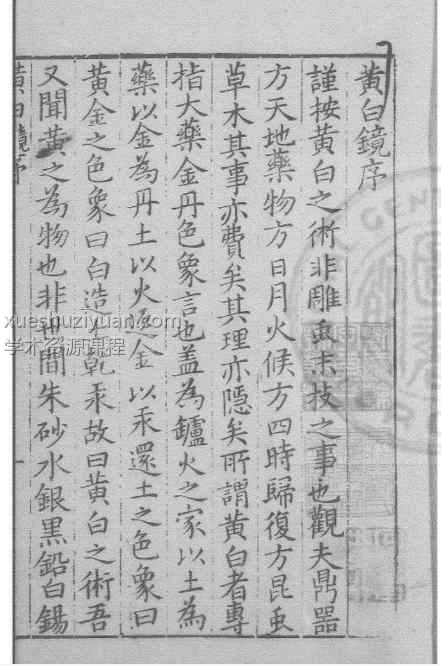 黄白鏡序
謹按黄白之術非雕虫末技之事也觀夫鼎器
方天地藥物方日月火候方四時歸復方昆虫
草木其事亦費矣其理亦隱矣所謂黄白者專
指大藥金丹色象言也盖為鑪火之家以土為
藥以金為丹土以火凂金以汞還土之色象曰
黄金之色象曰白造土乾汞故曰黄白之術吾
又聞黄之為物也非世間朱砂水銀黒鉛白錫
黄白鏡序
xueshuziyuan.com
学术资源课程